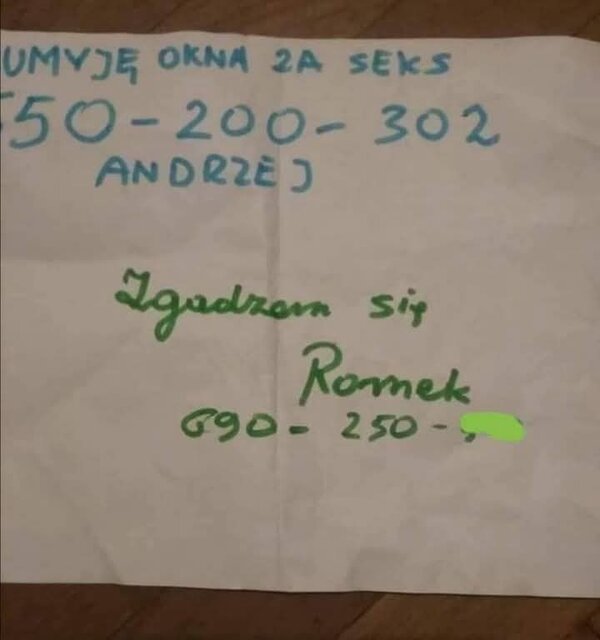 UMYJĘ OKNA ZA SEKS
550-200-302
ANDRZEJ
Zgadzam się
Romek
690-250-